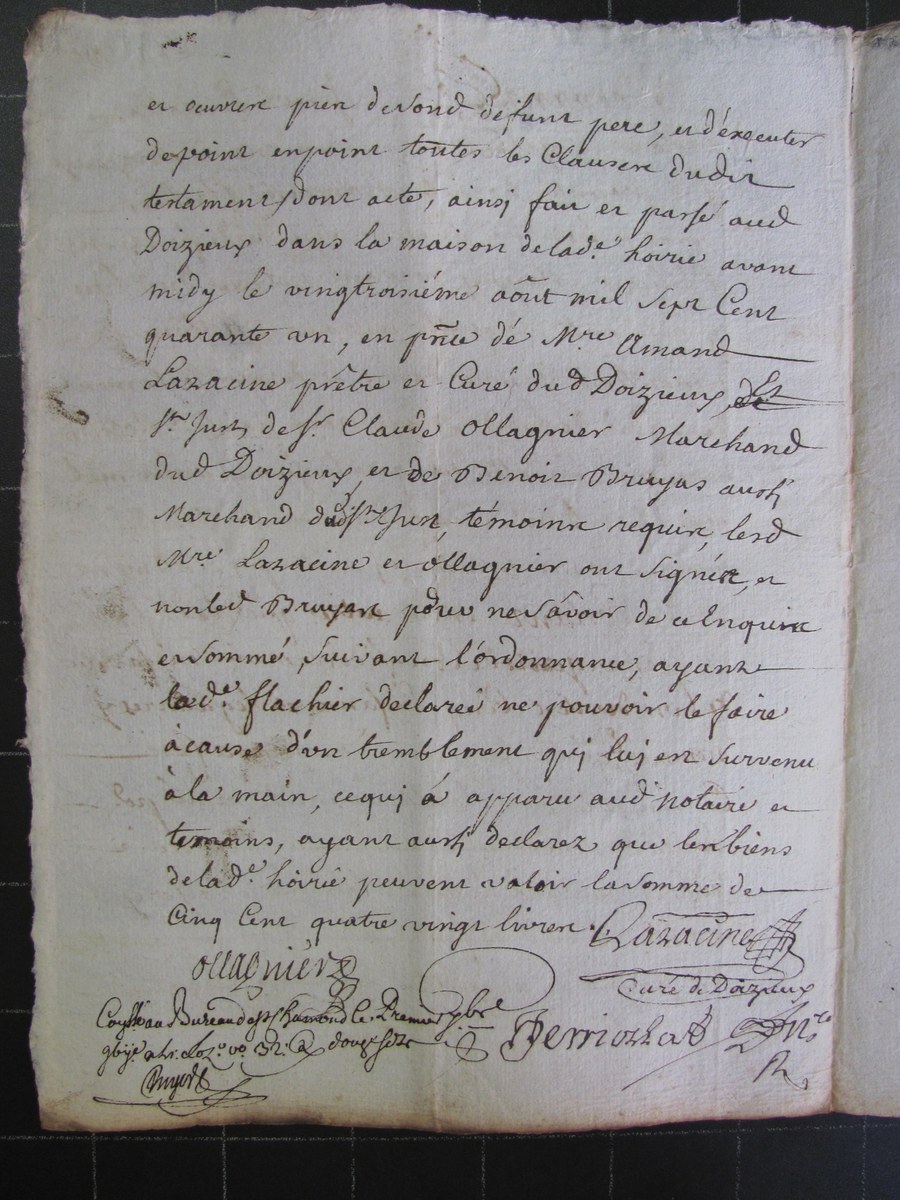 et oeuvres pies de sond defunt pere, et d'éxecuter
de point en point toutes les Clauses dudit
testament, dont acte, ainsi fait et passé aud
Doizieux dans la maison de lad.e hoirie avant
midy le vingtroisiéme aôut mil sept Cent
quarante un, en pñce dé M.re Amand
Lazacine prêtre et Curé dud Doizieux,
St Just, de Sr. Claude Ollagnier Marchand
dud Doizieux, et de Benoit Bruyas aussi
Marchand dud St Just, témoins requis, lesd
M.re Lazacine et ollagnier ont signés, et
non led Bruyas pour ne sávoir de ce Enquis
et sommé suivant l'órdonnance, ayant
lad.e flachier declareé ne pouvoir le faire
à cause d'vn tremblement qui luj est survenu
à la main, ce quj á apparu aud notaire et
temoins, ayant aussj declarez que les biens
de lad.e hóirie peuvent valoir la somme de
Cinq Cent quatre vingt livres. Lazacine
ollagnier
Curé de Doizieux
au Bureau de St Chamond le Premier 7bre
douze sols
Perrioshat